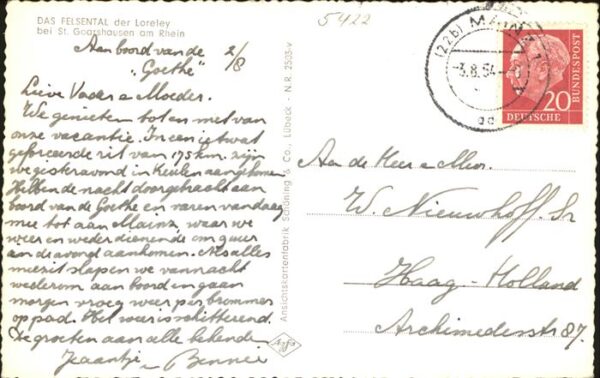 DAS FELSENTAL der Loreley
bei St. Goarshausen am Rhein
5422
Aan boord van de 2/8
"Goethe"
Lieve Vader e Moeder.
We genieten tot en met van
onze vacantie. In een ietwat
geforceerde rit van 175 km. zijn
we gisteravond in Keulen aangekomen
Hebben de nacht doorgebracht aan
boord van de Goethe en varen vandaag
mee tot aan Mainz, waar we
weer en weder dienende om uur
in de avond aankomen. Als alles
meezit slapen we vannacht
wederom aan boord en gaan
morgen vroeg weer per brommer
op pad. Het weer is schitterend.
De groeten aan alle bekende
Jeaantje Bennie
Ansichtskartenfabrik Schöning & Co., Lübeck - N.R. 2503-v
Agfa
(22b) MAINZ 1
-3.8.54
20
DEUTSCHE
BUNDESPOST
Aan de Heer e Mevr.
W. Nieuwhoff. Sr
Haag-Holland
Archimedesstr 87.